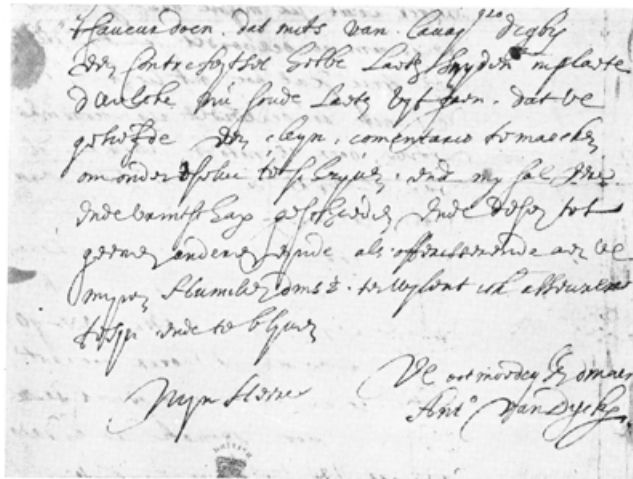 t faveur doen. dat mits van Cavag.ro digby
den contrefeytsel hebbe laeten snyden in plaete
d'welcke nu soude laeten uyt gaen. dat ul
geliefde een cleyn. comentario te maecken
om onder tselve te schryven. ende my sal eere
ende vrintschap geschieden ende desen tot
geenen anderen eynde als offererende aen ul
mynen humbele dinst. terwylent ick asseurere
te syn ende te blyven
Myn Heere
Ul ootmoedigen dinaer
Ant.o van Dyck